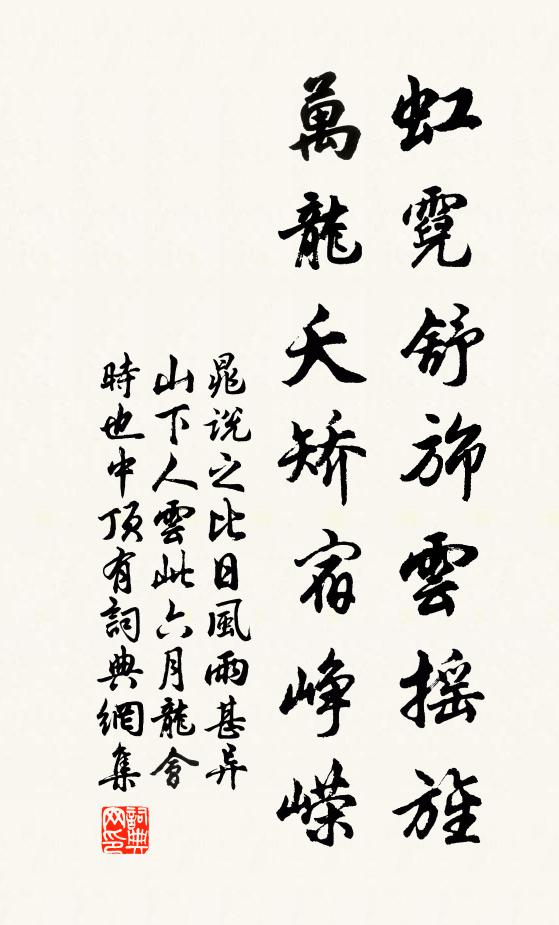 虹霓舒斾雲摇旌
萬龍夭矯宿崢嶸
晁説之比日風雨甚异
山下人雲此六月龍會
時也中頂有詞典網集
詞典网印